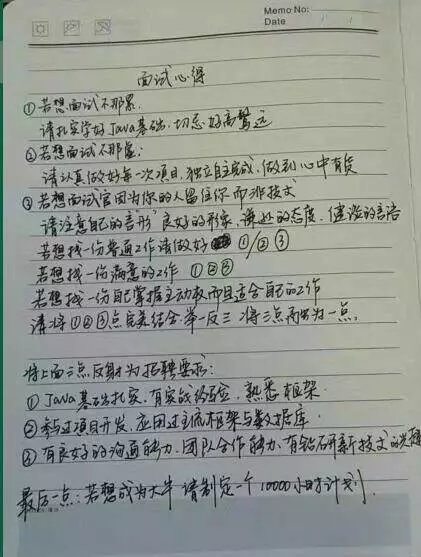 Memo No:
Date
面试心得
①若想面试不那累
请扎实学好Java基础,切忌好高骛远
②若想面试不那虚:
请认真做好每一次项目,独立自主完成,做到心中有货
③若想面试官因为你的人留住你而非技术
请注意自己的言形 良好的形象,谦逊的态度,健谈的言语
若想找一份普通工作请做好 ①/②③
若想找一份满意的工作 ①②③
若想找一份自己掌握主动权而且适合自己的工作
请将①②③点完美结合,举一反三,将三点融为一点。
将上面三点反射为招聘要求:
①Java基础扎实,有实战经验,熟悉框架
②参过项目开发,应用过主流框架与数据库.
③有良好的沟通能力,团队合作能力,有钻研新技术的
最后一点:若想成为大牛 请制定一个10000小时计划